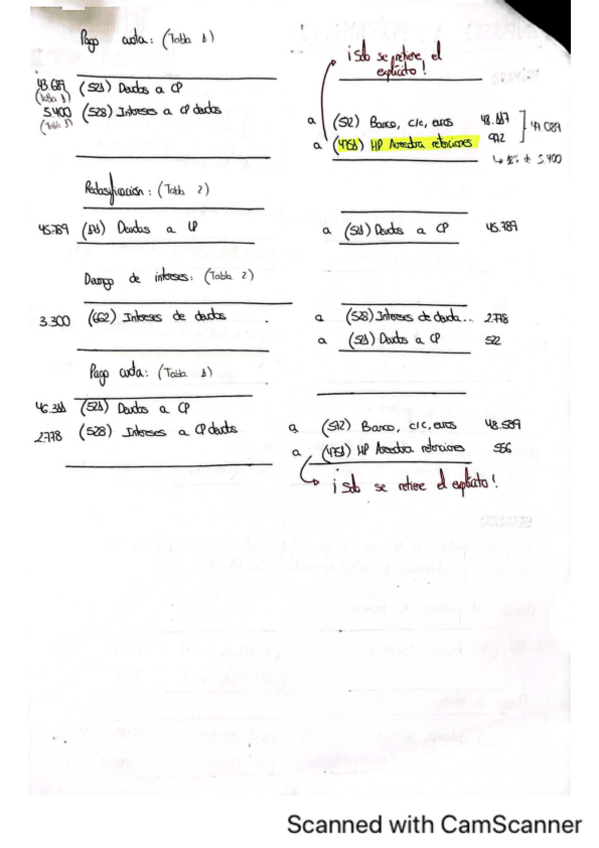 Pago cuota: (Tabla 1)
¡Sólo se retiene el
explícito!
43.689 (521) Deudas a CP
(Tabla 1)
5.400 (528) Intereses a CP deudas
(Tabla 1)
a (572) Banco, c/c, euros 48.117
a (4751) HP Acreedora retenciones 972
Reclasificación: (Tabla 2)
45.789 (171) Deudas a LP a (521) Deudas a CP 45.789
Devengo de intereses: (Tabla 2)
3.300 (662) Intereses de deudas a (528) Intereses de deuda... 2.778
a (521) Deudas a CP 522
Pago cuota: (Tabla 1)
46.311 (521) Deudas a CP
2.778 (528) Intereses a CP deudas a (572) Banco, c/c, euros 48.589
a (4751) HP Acreedora retenciones 556
¡Sólo se retiene el explícito!
Scanned with CamScanner